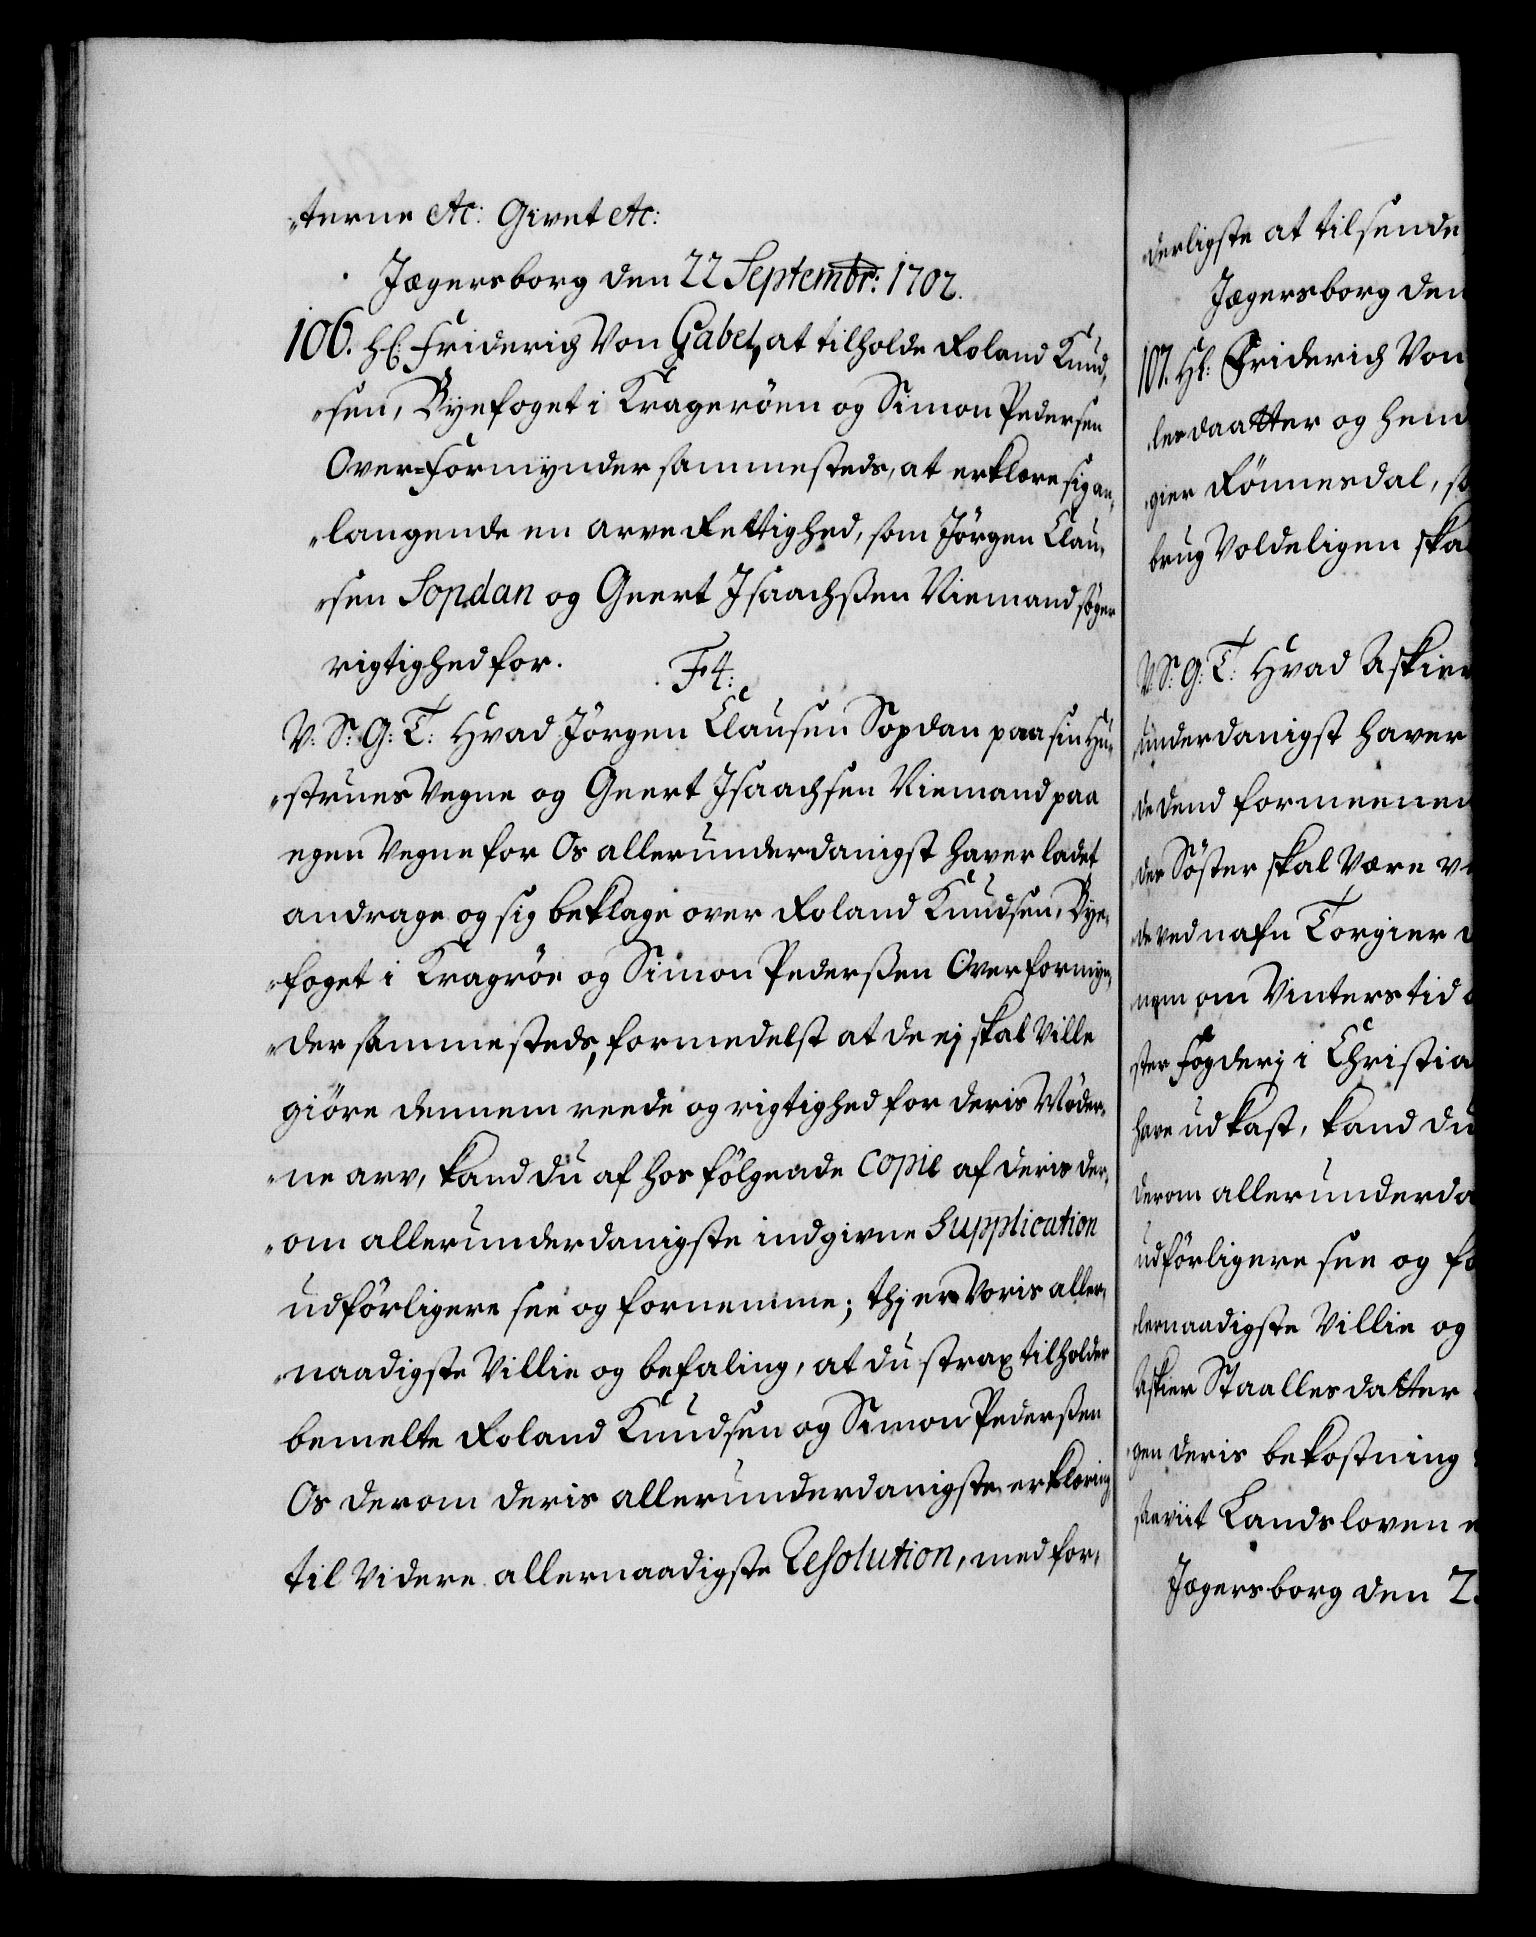 "terne etc: Givet etc:
Jægersborg den 22 Septembr: 1702.
106. Hl Friderich Von Gabel, at tilholde Roland Knud„
„sen, Byefoget i Kragerøen og Simon Pedersen
Over=Formynder sammesteds, at erklære sig an„
„langende en arve Rettighed, som Jørgen Clau„
„sen Sopdan og Geert Isaachsßen Niemand søger
rigtighed for. F4:
V: S: G: T: Hvad Jørgen Clausen Sopdan paa sin Hu„
„strues Vegne og Geert Isaachsen Niemand paa
egen Vegne for Os allerunderdanigst haver ladet
andrage og sig beklage over Roland Knudsen, Bye„
„foget i Kragrøe og Simon Pederßen Overformyn„
„der sammesteds, formedelst at de ej skal Ville
giöre dennem reede og rigtighed for deris Møder„
„ne arv, kand du af hosfølgende copie af deris der„
„om allerunderdanigste indgivne Supplication
udførligere see og fornemme; thj er Voris aller„
„naadigste Villie og befaling, at du strax tilholder
bemelte Roland Knudsen og Simon Pederßen
Os derom deris allerunderdanigste erklæring
til Videre allernaadigste Resolution, med for„
„derligste at tilsende
Jægersborg den
107. Hl: Friderich Von
lesdaatter og hend
„gier Rønnesdal, so
brug Voldeligen ska
V: S: G: T: Hvad Askier
underdanigst haver
de dend formeenen
der Søster skal Være v
de ved nafn Torgier
nem om Vinters tid
ster Fogderj i Christia
have udkast, kand du
derom allerunderda
udførligere see og fo
lernaadigste Villie og
Askier Staallesdatter
gen deris bekostning
saaviit Landsloven
Jægersborg den 2